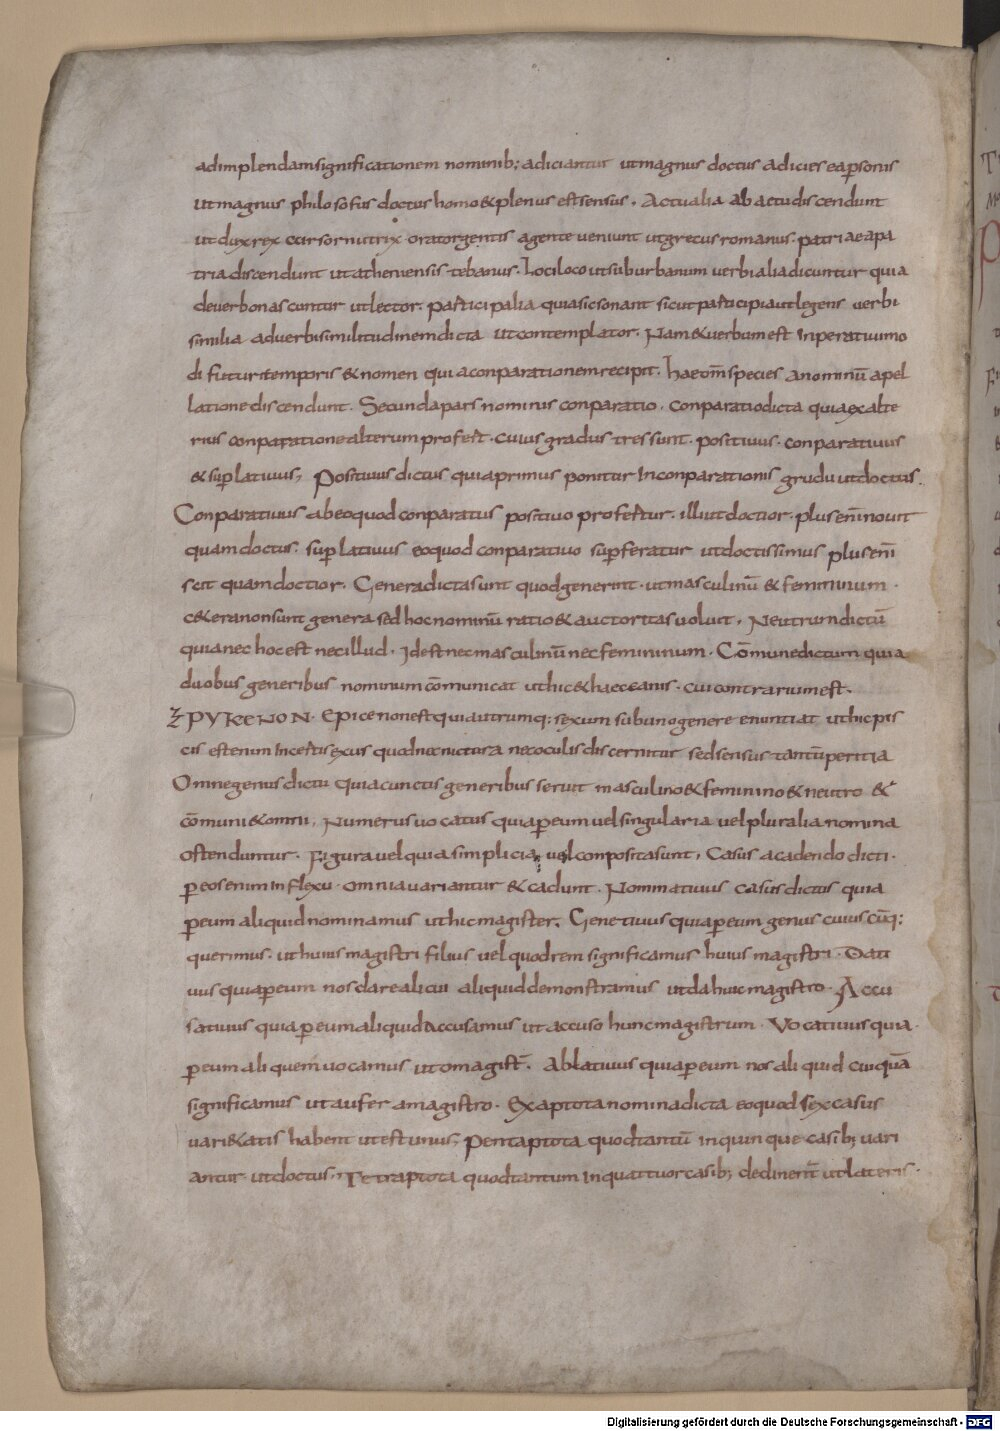 adimplendam significationem nominib; adiciantur ut magnus doctus adicies ea p̱sonis
ut magnus philosofus doctus homo & plenus est sensus. Actualia ab actu discendunt
ut dux rex cursor nutrix orator gentis a gente ueniunt ut grecus romanus. patriae a pa
tria discendunt ut atheniensis tebanus. Loci loco ut suburbanum uerbialia dicuntur quia
de uerbo nascuntur ut lector. participalia quia sic sonant sicut participia ut legens uerbi
similia ad uerbi similitudinem dicta ut contemplator. Nam & uerbum est inperatiui mo
di futuri temporis & nomen quia conparationem recipit. haec om̄ species a nominū apel
latione discendunt. Secunda pars nominis conparatio. conparatio dicta quia ex alte
rius conparatione alterum profert. cuius gradus tres sunt. positiuus. conparatiuus
& sup̱latiuus; Positiuus dictus quia primus ponitur in conparationis gradu ut doctus.
Conparatiuus ab eo quod conparatus positiuo profertur. illi ut doctior. plus eni̅ nouit
quam doctus. sup̱latiuus eo quod conparatiuo sup̱feratur ut doctissimus plus eni̅
scit quam doctior. Genera dicta sunt quod generint. ut masculinū & femininum.
c&era non sunt genera sed hoc nominū ratio & auctoritas uoluit. Neutrum dictū
quia nec hoc est nec illud. Id est nec masculinū nec femininum. Cōmune dictum quia
duobus generibus nominum cōmunicat ut hic & haec canis. cui contrarium est.
ΕPYKENON. Epicenon est qui a utrumq: sexum sub uno genere enuntiat ut hic pis
cis est enim incerti sexus quod nec nictura nec oculis discernitur sed sensus tantū peritia
Omne genus dictū quia cunctis generibus seruit masculino & feminino & neutro &
cōmuni & omni. Numerus uocatus quia p̱ eum uel singularia uel pluralia nomina
ostenduntur. Figura uel quia simplicia uel composita sunt. Casus a cadendo dicti.
p̱ eos enim inflexu omnia uariantur & cadunt. Nominatiuus casus dictus quia
p̱ eum aliquid nominamus ut hic magister. Genetiuus quia p̱ eum genus cuius cūq:
querimus. ut huius magistri filius uel quod rem significamus huius magistri. Dati
uus quia p̱ eum nos dare alicui aliquid demonstramus ut da huic magistro. Accu
satiuus quia p̱ eum aliquid accusamus ut accuso hunc magistrum. Vocatiuus quia.
p̱ eum aliquem uocamus ut o magist̄. Ablatiuus quia p̱ eum nos aliquid cuiquā
significamus ut aufer a magistro. Exaptota nomina dicta eo quod sex casus
uari&atis habent ut est unus; Pentaptota quod tantū in quinque casib; uari
antur ut doctus. Tetraptota quod tantum in quattuor casib; declinent̄ ut lateris.
Digitalisierung gefördert durch die Deutsche Forschungsgemeinschaft - DFG